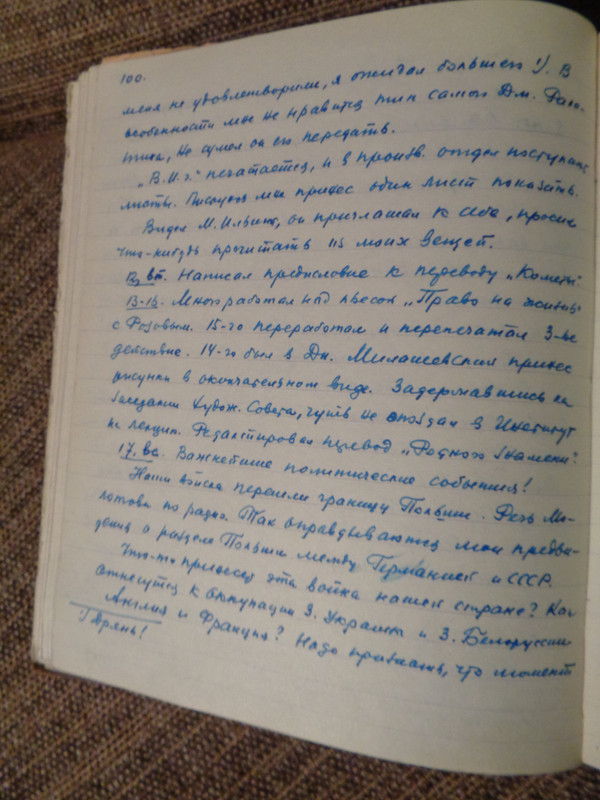 100.
меня не удовлетворили, я ожидал большего 1). В
особенности мне не нравится тип самого Дм. Рого-
жина, не сумел он его передать.
„В.И.г." печатается, и в произв. отдел поступают
листы. Пискунов мне принес один лист показать.
Видел М. Ильина, он приглашал к себе, просил
что-нибудь прочитать из моих вещей.
12, вт. Написал предисловие к переводу „Кометы".
13-16. Много работал над пьесой „Право на жизнь"
с Розовым. 15-го переработал и перепечатал 3-ье
действие. 14-го был в ДИ. Милашевский принес
рисунки в окончательном виде. Задержавшись на
заседании Худож. Совета, чуть не опоздал в Институт
на лекции. Редактировал перевод „Родного знамени".
17, вс. Важнейшие политические события!
Наши войска перешли границу Польши. Речь Мо-
лотова по радио. Так оправдываются мои предви-
дения о разделе Польши между Германией и СССР.
Что-то принесет эта война нашей стране? Как
отнесутся к оккупации З. Украины и З. Белоруссии
Англия и Франция? Надо признать, что момент
1) Дрянь!